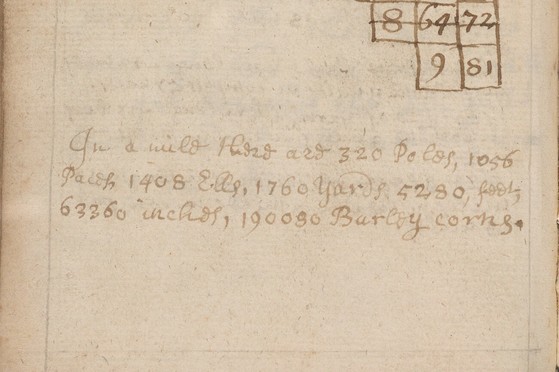 8 64 72
9 81
In a mile there are 320 Poles, 1056
Paces, 1408 Ells, 1760 Yards, 5280, feet,
63360 inches, 190080 Barley corns.